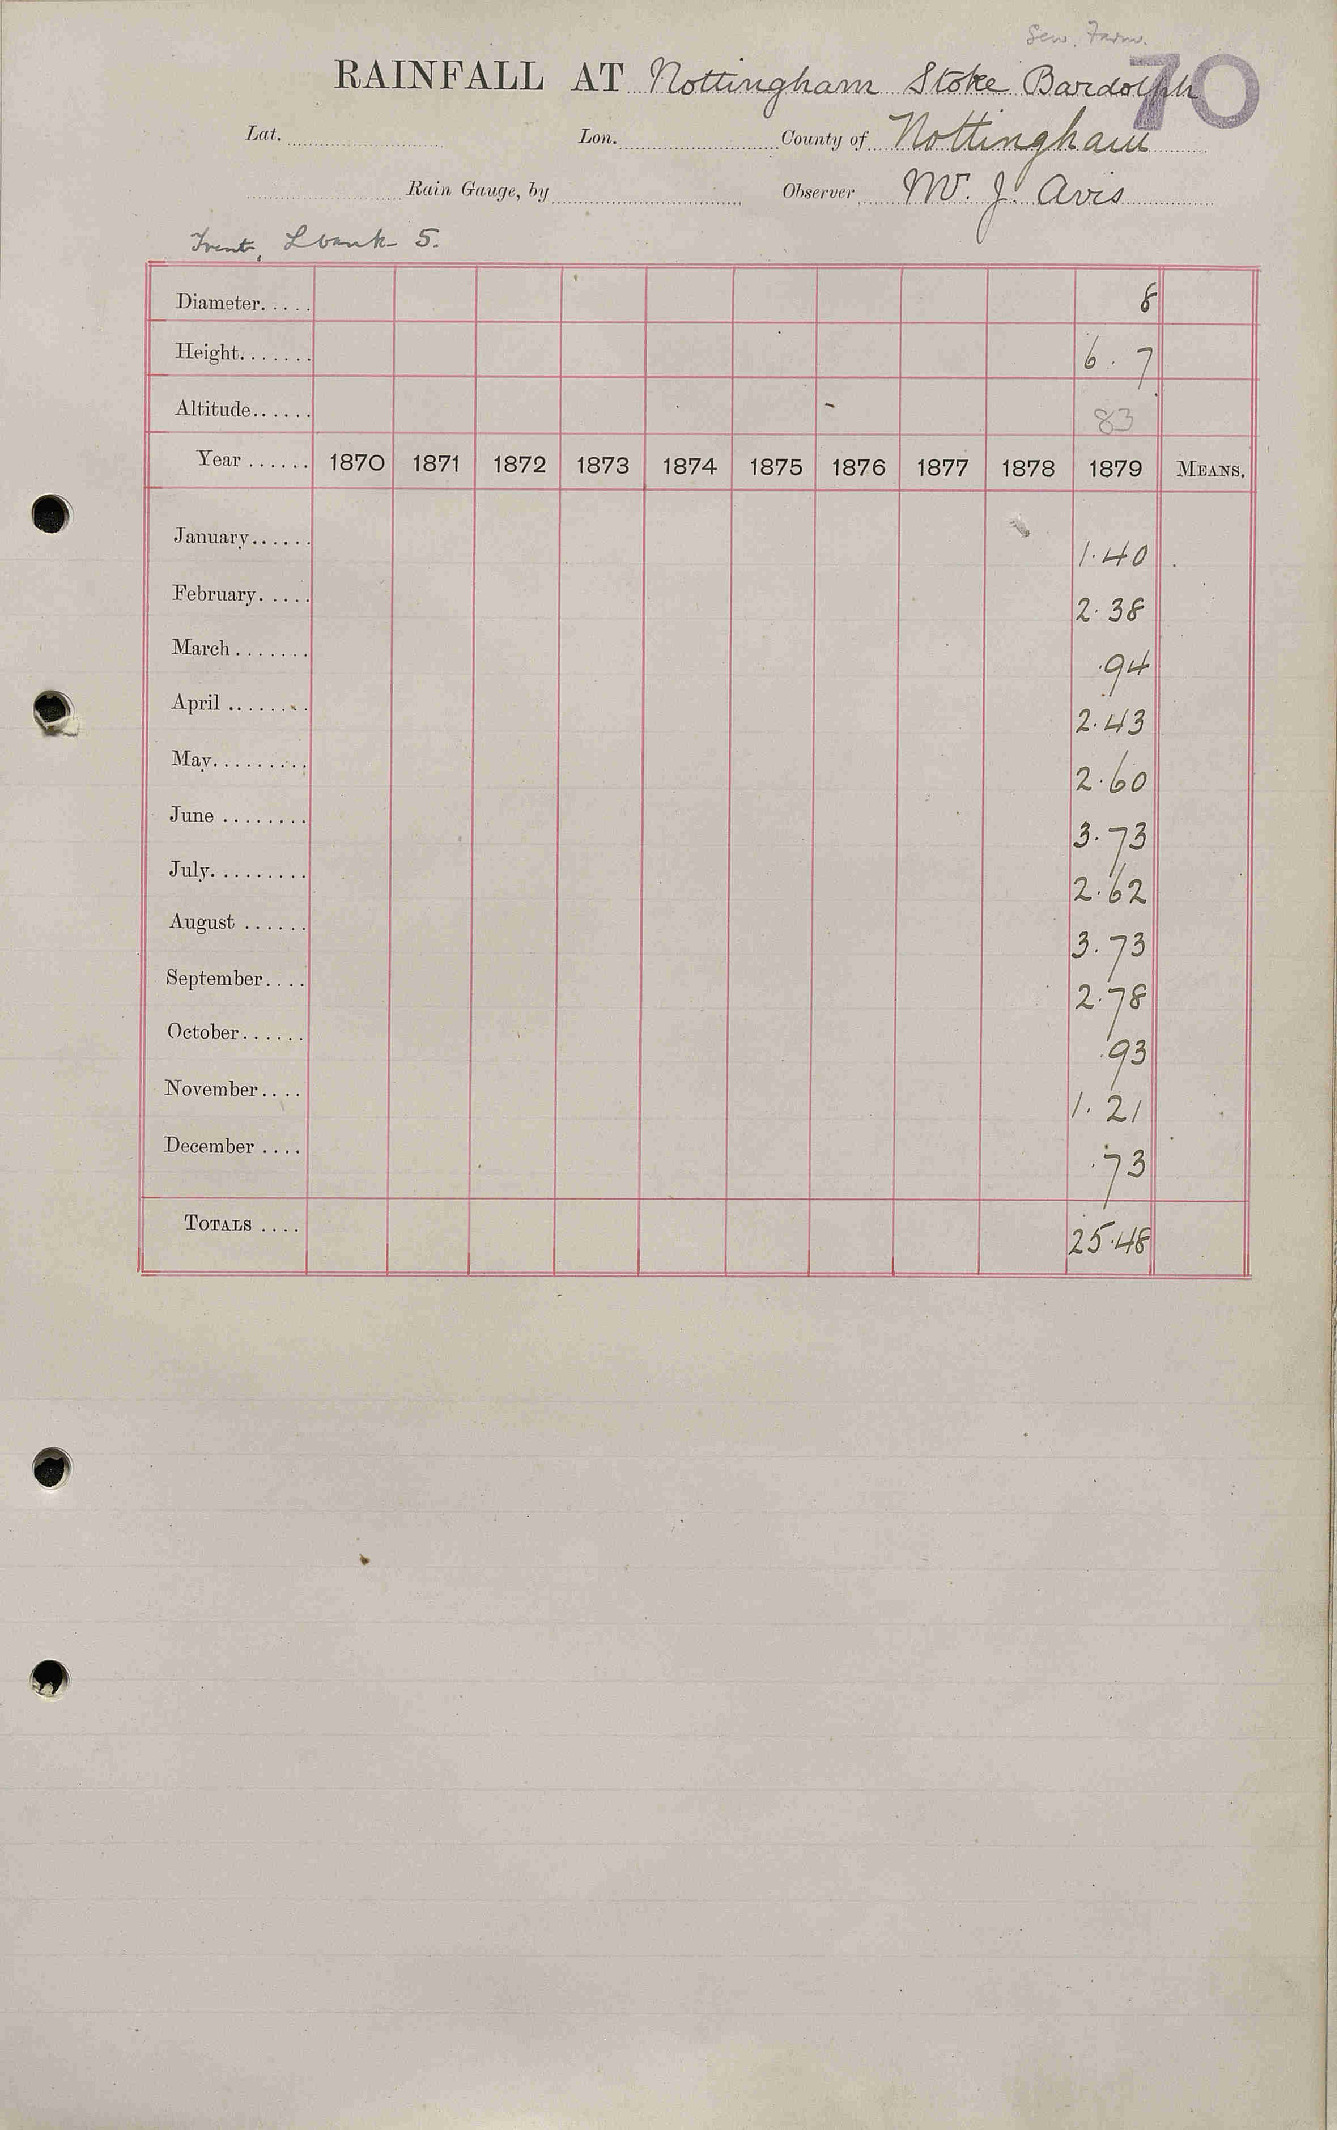 Sew. Farm.
70
RAINFALL AT Nottingham Stoke Bardolph
Lat. Lon. County of Nottingham
Rain Gauge, by Observer Mr. J. Avis
Trent, L bank 5.
Diameter..... 8
Height....... 6. 7
Altitude...... 83
Year...... 1870 1871 1872 1873 1874 1875 1876 1877 1878 1879 MEANS.
January...... 1.40
February..... 2.38
March....... .94
April........ 2.43
May......... 2.60
June........ 3.73
July......... 2.62
August...... 3.73
September.... 2.78
October...... .93
November.... 1.21
December.... .73
TOTALS.... 25.48